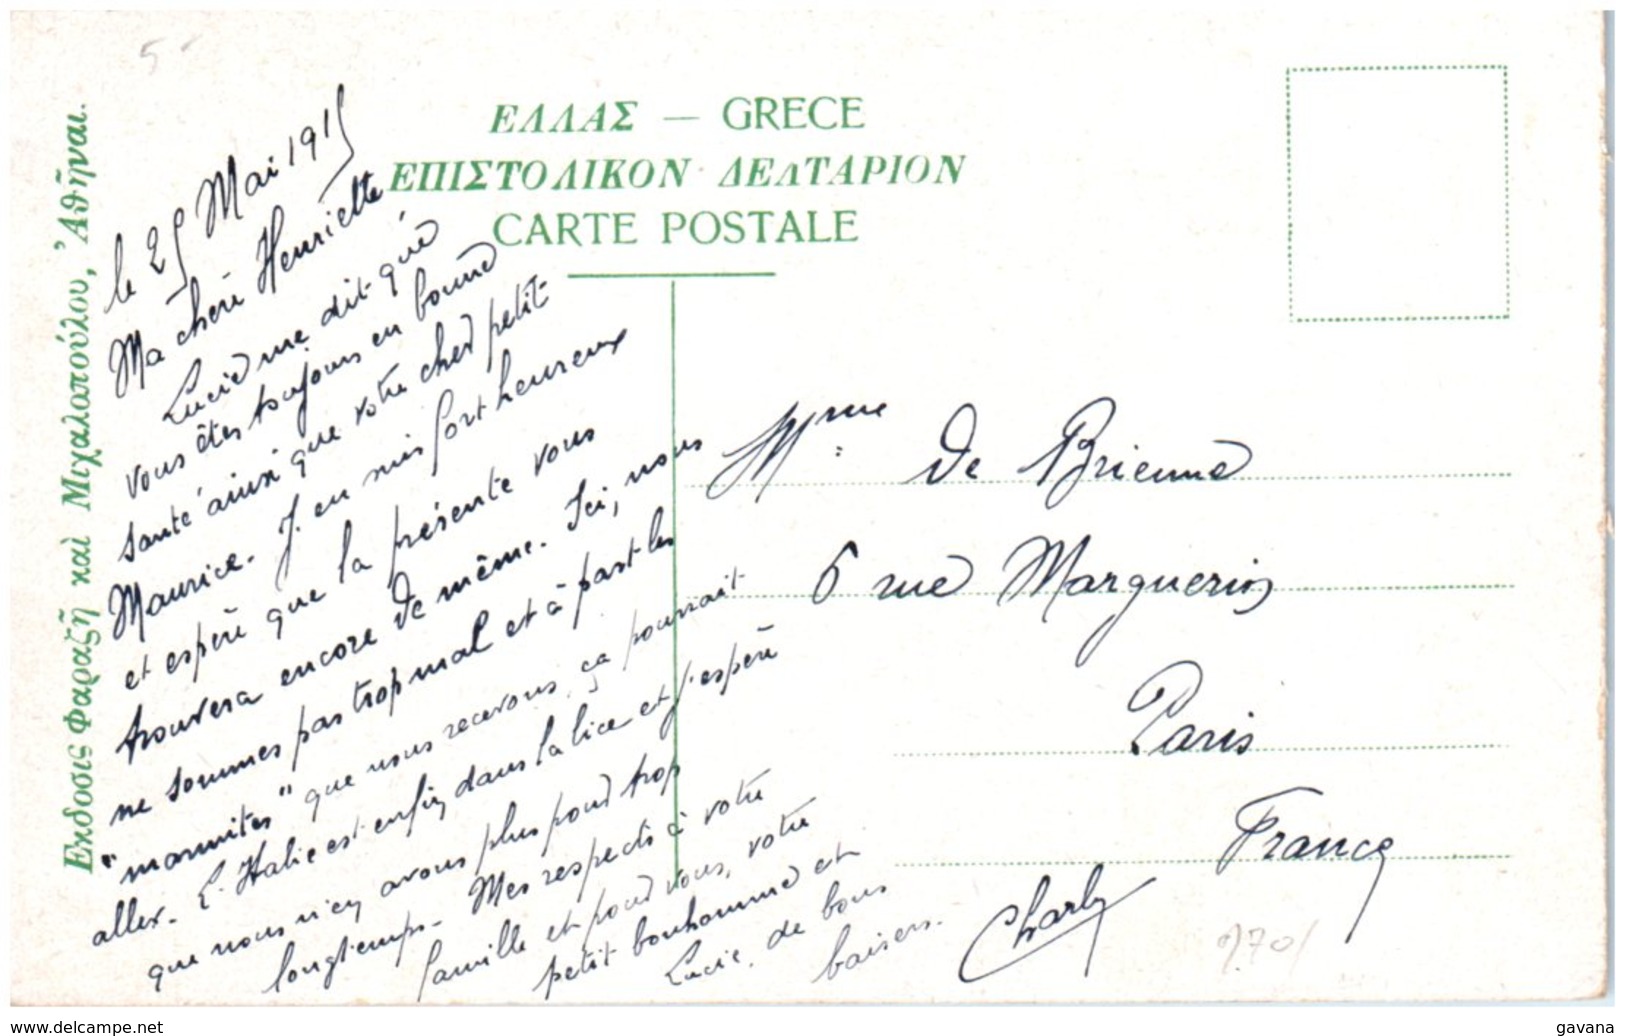 5
ΕΛΛΑΣ — GRECE
ΕΠΙΣΤΟΛΙΚΟΝ ΔΕΛΤΑΡΙΟΝ
CARTE POSTALE
Εκδοσις Φαραζῆ καὶ Μιχαλοπούλου, Ἀθῆναι.
le 25 Mai 1915
Ma chère Henriette
Lucie me dit que
vous êtes toujours en bonne
santé ainsi que votre cher petit
Maurice. J'en suis fort heureux
et espère que la présente vous
trouvera encore de même. Ici, nous
ne sommes pas trop mal et à part les
"marmites" que nous recevons, ça pourrait
aller. L'Italie est enfin dans la lice et j'espère
que nous n'en avons plus pour trop
longtemps. Mes respects à votre
famille et pour vous, votre
petit bonhomme et
Lucie, de bons
baisers.
Charly
Mme de Brienne
6 rue Marguerin
Paris
France
delcampe.net
gavana